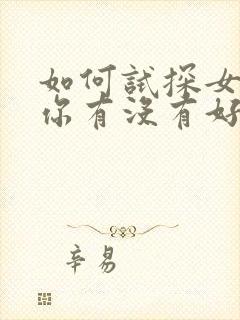 如何試探女
你有沒有好
辛易